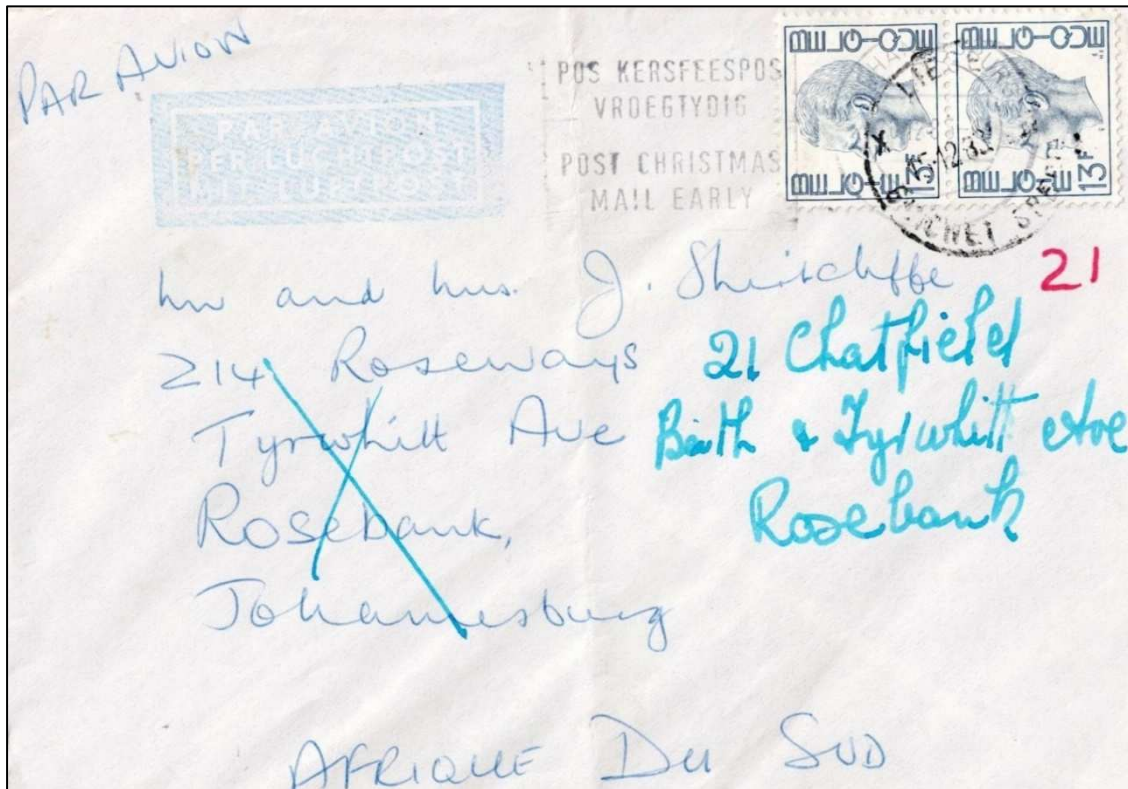 PAR AVION
PAR AVION
PER LUCHTPOST
MIT LUFTPOST
POS KERSFEESPOS
VROEGTYDIG
POST CHRISTMAS
MAIL EARLY
BELGIQUE BELGIQUE
BELGIË 13F BELGIË 13F
12 83
STREET
21
and J.
214 Roseways
Tyrwhitt Ave
Rosebank,
Johannesburg
21 Chatfield
& Tyrwhitt Ave
Rosebank
AFRIQUE DU SUD